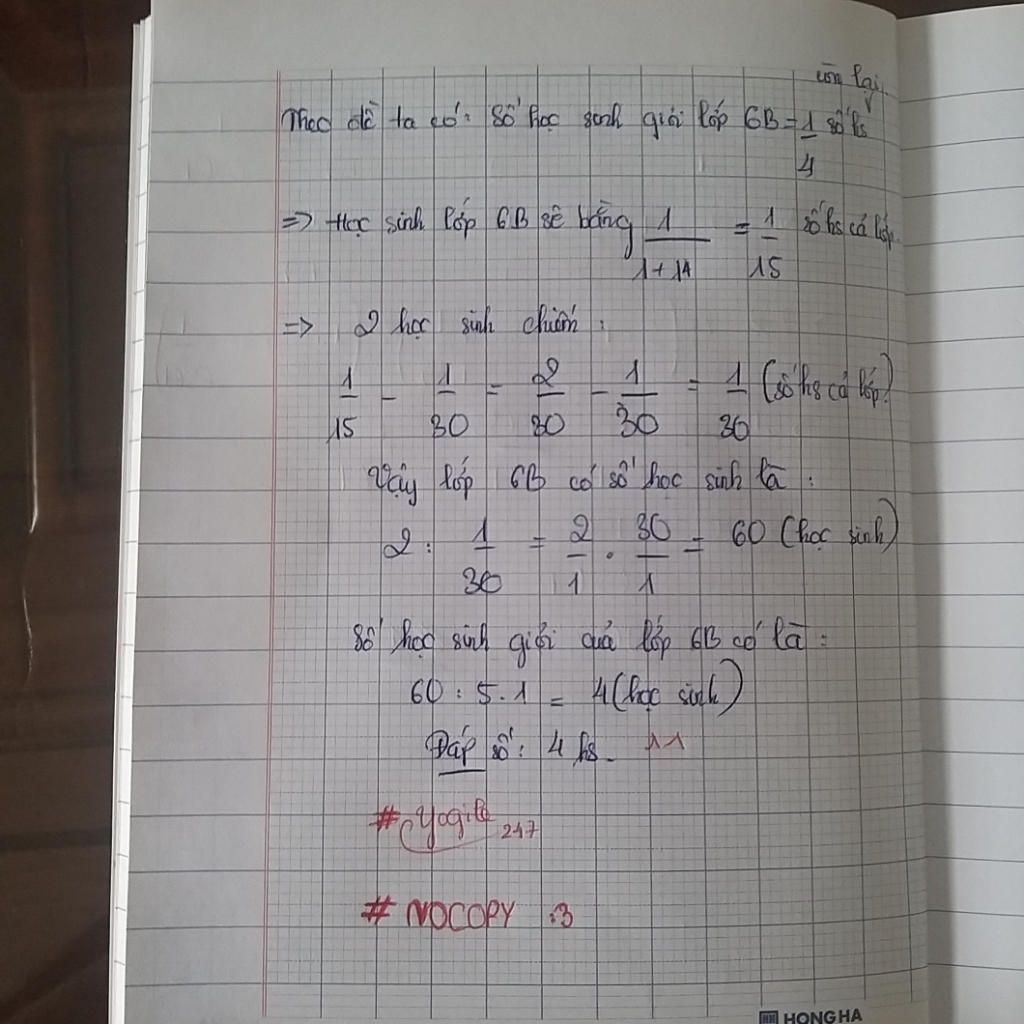 còn lại.
Theo đề ta có: Số học sinh giỏi lớp 6B = 1/4 số hs
=> Học sinh lớp 6B sẽ bằng 1/(1+14) = 1/15 số hs cả lớp.
=> 2 học sinh chiếm :
1/15 - 1/30 = 2/30 - 1/30 = 1/30 (số hs cả lớp)
Vậy lớp 6B có số học sinh là :
2 : 1/30 = 2/1 . 30/1 = 60 (học sinh)
Số học sinh giỏi quả lớp 6B có là :
60 : 5 . 1 = 4 (học sinh)
Đáp số : 4 hs. ^^
# Yogile 247
# NOCOPY :3
HONG HA